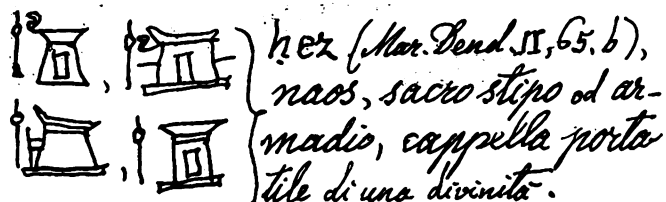 ḥez (Mar. Dend. II, 65, b),
naos, sacro stipo od ar-
madio, cappella porta
tile di una divinità.